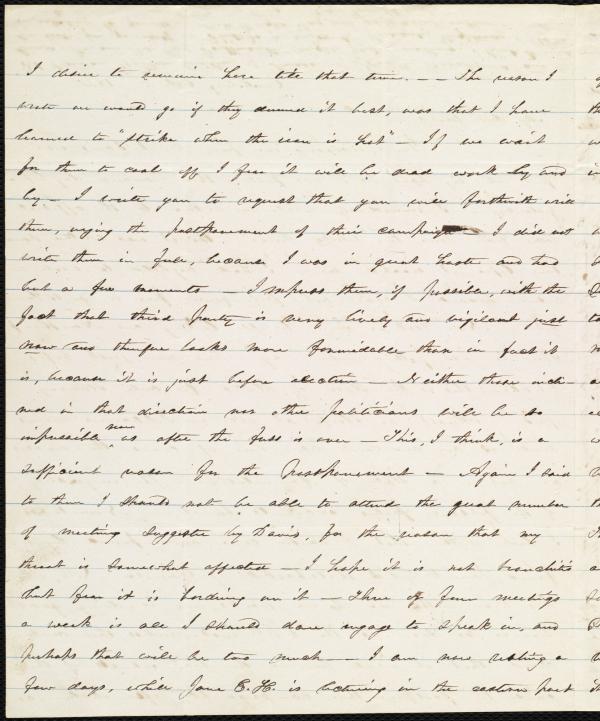 I desire to remain here till that time. — — The reason I
wrote we would go if they deemed it best, was that I have
learned to "strike when the iron is hot" — If we wait
for them to cool off I fear it will be dead work by and
by — I write you to request that you will forthwith write
them, urging the postponement of their campaign — I did not
write them in full, because I was in great haste and had
but a few moments — Impress them, if possible, with the
fact that third party is very lively and vigilant just
now and therefore looks more formidable than in fact it
is, because it is just before election — Neither those incli-
ned in that direction nor other politicians will be so
impossible new as after the fuss is over — This, I think, is a
sufficient reason for the postponement — Again I said
to them I should not be able to attend the great number
of meetings suggested by Davis, for the reason that my
throat is somewhat affected — I hope it is not bronchitis
but fear it is bordering on it — Three of four meetings
a week is all I should dare engage to speak in, and
perhaps that will be too much — — I am now resting a
few days, while Jane E. H. is lecturing in the eastern part